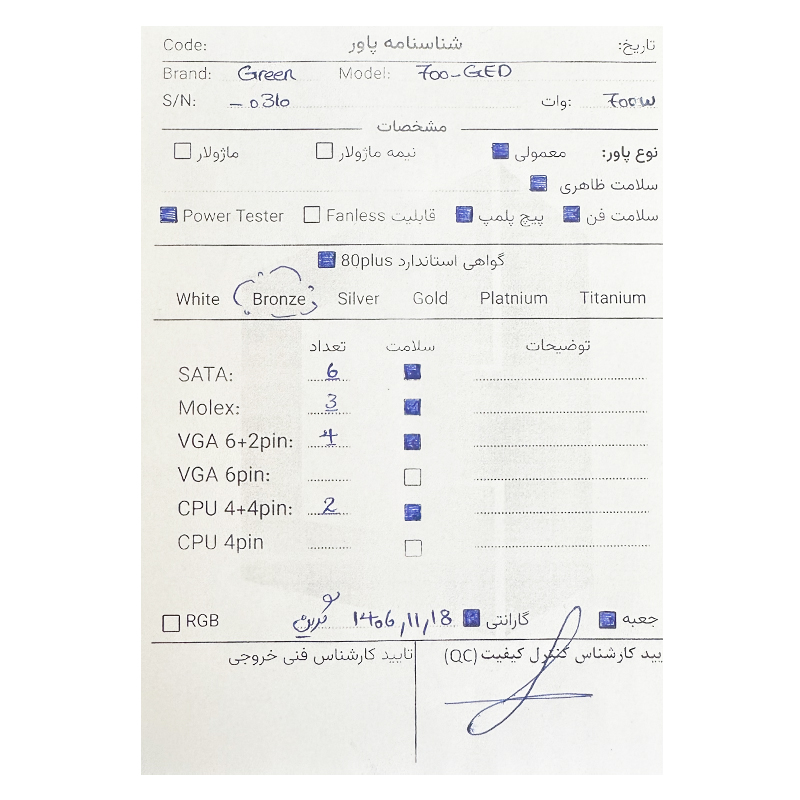 Code: شناسنامه پاور تاریخ:
Brand: Green Model: 700-GED
S/N: -0310 وات: 700W
مشخصات
نوع پاور: معمولی نیمه ماژولار ماژولار
سلامت ظاهری
سلامت فن پیچ پلمپ قابلیت Fanless Power Tester
گواهی استاندارد 80plus
White Bronze Silver Gold Platnium Titanium
تعداد سلامت توضیحات
SATA: 6
Molex: 3
VGA 6+2pin: 4
VGA 6pin:
CPU 4+4pin: 2
CPU 4pin
جعبه گارانتی 1406,11,18 گرین RGB
یید کارشناس کنترل کیفیت (QC) تایید کارشناس فنی خروجی